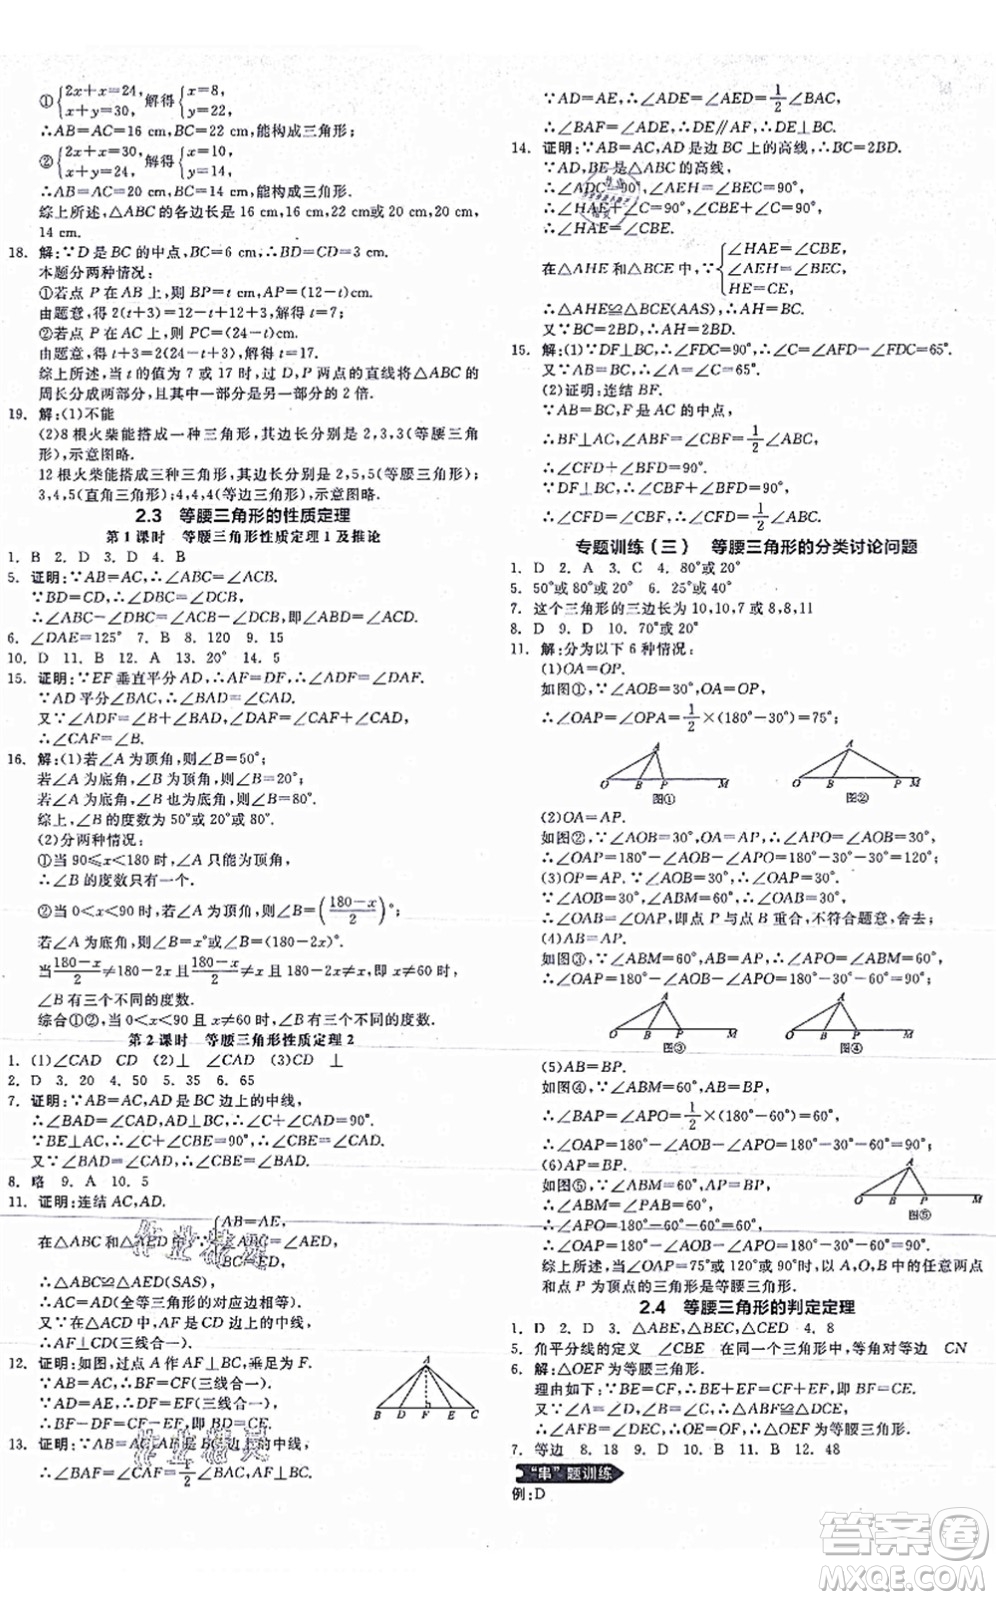 ①{2x+x=24, x+y=30, 解得{x=8, y=22,
∴AB=AC=16 cm,BC=22 cm,能构成三角形;
②{2x+x=30, x+y=24, 解得{x=10, y=14,
∴AB=AC=20 cm,BC=14 cm,能构成三角形.
综上所述,△ABC的各边长为16 cm,16 cm,22 cm或20 cm,20 cm,
14 cm.
18. 解:∵D是BC的中点,BC=6 cm,∴BD=CD=3 cm.
本题分两种情况:
①若点P在AB上,则BP=t cm,PA=(12-t)cm.
由题意,得2(t+3)=12-t+12+3,解得t=7;
②若点P在AC上,则PC=(24-t)cm.
由题意,得t+3=2(24-t+3),解得t=17.
综上所述,当t的值为7或17时,过D,P两点的直线将△ABC的
周长分成两部分,且其中一部分是另一部分的2倍.
19. 解:(1)不能
(2)8根火柴能搭成一种三角形,其边长分别是2,3,3(等腰三角
形),示意图略.
12根火柴能搭成三种三角形,其边长分别是2,5,5(等腰三角形);
3,4,5(直角三角形);4,4,4(等边三角形),示意图略.
2.3 等腰三角形的性质定理
第1课时 等腰三角形性质定理1及推论
1. B 2. D 3. D 4. B
5. 证明:∵AB=AC,∴∠ABC=∠ACB.
∵BD=CD,∴∠DBC=∠DCB,
∴∠ABC-∠DBC=∠ACB-∠DCB,即∠ABD=∠ACD.
6. ∠DAE=125° 7. B 8. 120 9. 15
10. D 11. B 12. A 13. 20° 14. 5
15. 证明:∵EF垂直平分AD,∴AF=DF,∴∠ADF=∠DAF.
∵AD平分∠BAC,∴∠BAD=∠CAD.
又∵∠ADF=∠B+∠BAD,∠DAF=∠CAF+∠CAD,
∴∠CAF=∠B.
16. 解:(1)若∠A为顶角,则∠B=50°;
若∠A为底角,∠B为顶角,则∠B=20°;
若∠A为底角,∠B也为底角,则∠B=80°.
综上,∠B的度数为50°或20°或80°.
(2)分两种情况:
①当90≤x<180时,∠A只能为顶角,
∴∠B的度数只有一个.
②当0<x<90时,若∠A为顶角,则∠B=((180-x)/2)°;
若∠A为底角,则∠B=x°或∠B=(180-2x)°.
当(180-x)/2≠180-2x且(180-x)/2≠x且180-2x≠x,即x≠60时,
∠B有三个不同的度数.
综合①②,当0<x<90且x≠60时,∠B有三个不同的度数.
第2课时 等腰三角形性质定理2
1. (1)∠CAD CD (2)⊥ ∠CAD (3)CD ⊥
2. D 3. 20 4. 50 5. 35 6. 65
7. 证明:∵AB=AC,AD是BC边上的中线,
∴∠BAD=∠CAD,AD⊥BC,∴∠C+∠CAD=90°.
∵BE⊥AC,∴∠C+∠CBE=90°,∴∠CBE=∠CAD.
又∵∠BAD=∠CAD,∴∠CBE=∠BAD.
8. 略 9. A 10. 5
11. 证明:连结AC,AD.
在△ABC和△AED中,∵{AB=AE, ∠ABC=∠AED, BC=ED,
∴△ABC≌△AED(SAS),
∴AC=AD(全等三角形的对应边相等).
又∵在△ACD中,AF是CD边上的中线,
∴AF⊥CD(等腰三角形三线合一).
12. 证明:如图,过点A作AF⊥BC,垂足为F.
∵AB=AC,∴BF=CF(三线合一).
∵AD=AE,∴DF=EF(三线合一),
∴BF-DF=CF-EF,即BD=CE.
A
B D F E C
13. 证明:∵AB=AC,AF是BC边上的中线,
∴∠BAF=∠CAF=1/2∠BAC,AF⊥BC.
∵AD=AE,∴∠ADE=∠AED=1/2∠BAC,
∴∠BAF=∠ADE,∴AF∥DE,∴DE⊥BC.
14. 证明:∵AB=AC,AD是边BC上的高线,∴BC=2BD.
∵AD,BE是△ABC的高线,
∴∠ADC=90°,∠AEH=∠BEC=90°,
∴∠HAE+∠C=90°,∠CBE+∠C=90°,
∴∠CBE=∠HAE.
在△AHE和△BCE中,∵{∠HAE=∠CBE, ∠AEH=∠BEC, HE=CE,
∴△AHE≌△BCE(AAS),∴AH=BC.
又∵BC=2BD,∴AH=2BD.
15. 解:(1)∵DF⊥BC,∴∠FDC=90°,∴∠C=∠AFD-∠FDC=65°.
又∵AB=BC,∴∠A=∠C=65°.
(2)证明:连结BF.
∵AB=BC,F是AC的中点,
∴BF⊥AC,∠CBF=∠ABF=1/2∠ABC,
∴∠CFD+∠BFD=90°.
∵DF⊥BC,∴∠CBF+∠BFD=90°,
∴∠CFD=∠CBF,∴∠CFD=1/2∠ABC.
专题训练(三) 等腰三角形的分类讨论问题
1. D 2. A 3. C 4. 80°或20°
5. 50°或80°或20° 6. 25°或40°
7. 这个三角形的三边长为10,10,7或8,8,11
8. D 9. D 10. 70°或20°
11. 解:分为以下6种情况:
(1)OA=OP.
如图①,∵∠AOB=30°,OA=OP,
∴∠OAP=∠OPA=1/2×(180°-30°)=75°;
A O B P M 图①
A O B P M 图②
(2)OA=AP.
如图②,∵∠AOB=30°,OA=AP,∴∠APO=∠AOB=30°,
∴∠OAP=180°-∠AOB-∠APO=180°-30°-30°=120°;
(3)OP=AP.∵∠AOB=30°,∠ABM=60°,
∴∠OAB=30°,∠OAP=∠AOB=30°,
∴∠OAB=∠OAP,即点P与点B重合,不符合题意,舍去;
(4)AB=AP.
如图③,∵∠ABM=60°,AB=AP,∴∠APO=∠ABM=60°,
∴∠OAP=180°-∠AOB-∠APO=180°-30°-60°=90°;
A O B P M 图③
A O B P M 图④
(5)AB=BP.
如图④,∵∠ABM=60°,AB=BP,
∴∠BAP=∠APO=1/2×(180°-60°)=60°,
∴∠OAP=180°-∠AOB-∠APO=180°-30°-60°=90°;
(6)AP=BP.
如图⑤,∵∠ABM=60°,AP=BP,
∴∠ABM=∠PAB=60°,
∴∠APO=180°-60°-60°=60°,
A O B P M 图⑤
∴∠OAP=180°-∠AOB-∠APO=180°-30°-60°=90°.
综上所述,当∠OAP的度数为75°或120°或90°时,以A,B,O中的任意两点
和点P为顶点的三角形是等腰三角形.
2.4 等腰三角形的判定定理
1. D 2. D 3. △ABE,△BEC,△CED 4. 8
5. 角平分线的定义 ∠CBE 在同一个三角形中,等角对等边 CN
6. 解:△OEF为等腰三角形.
理由如下:∵BE=CF,∴BE+EF=CF+EF,即BF=CE.
又∵∠A=∠D,∠B=∠C,∴△ABF≌△DCE,
∴∠AFB=∠DEC,∴OE=OF,∴△OEF为等腰三角形
7. 等边 8. 18 9. D 10. B 11. B 12. 48
"串"题训练
例:D
作业精灵
作业精灵
答案圈
MXQE.COM